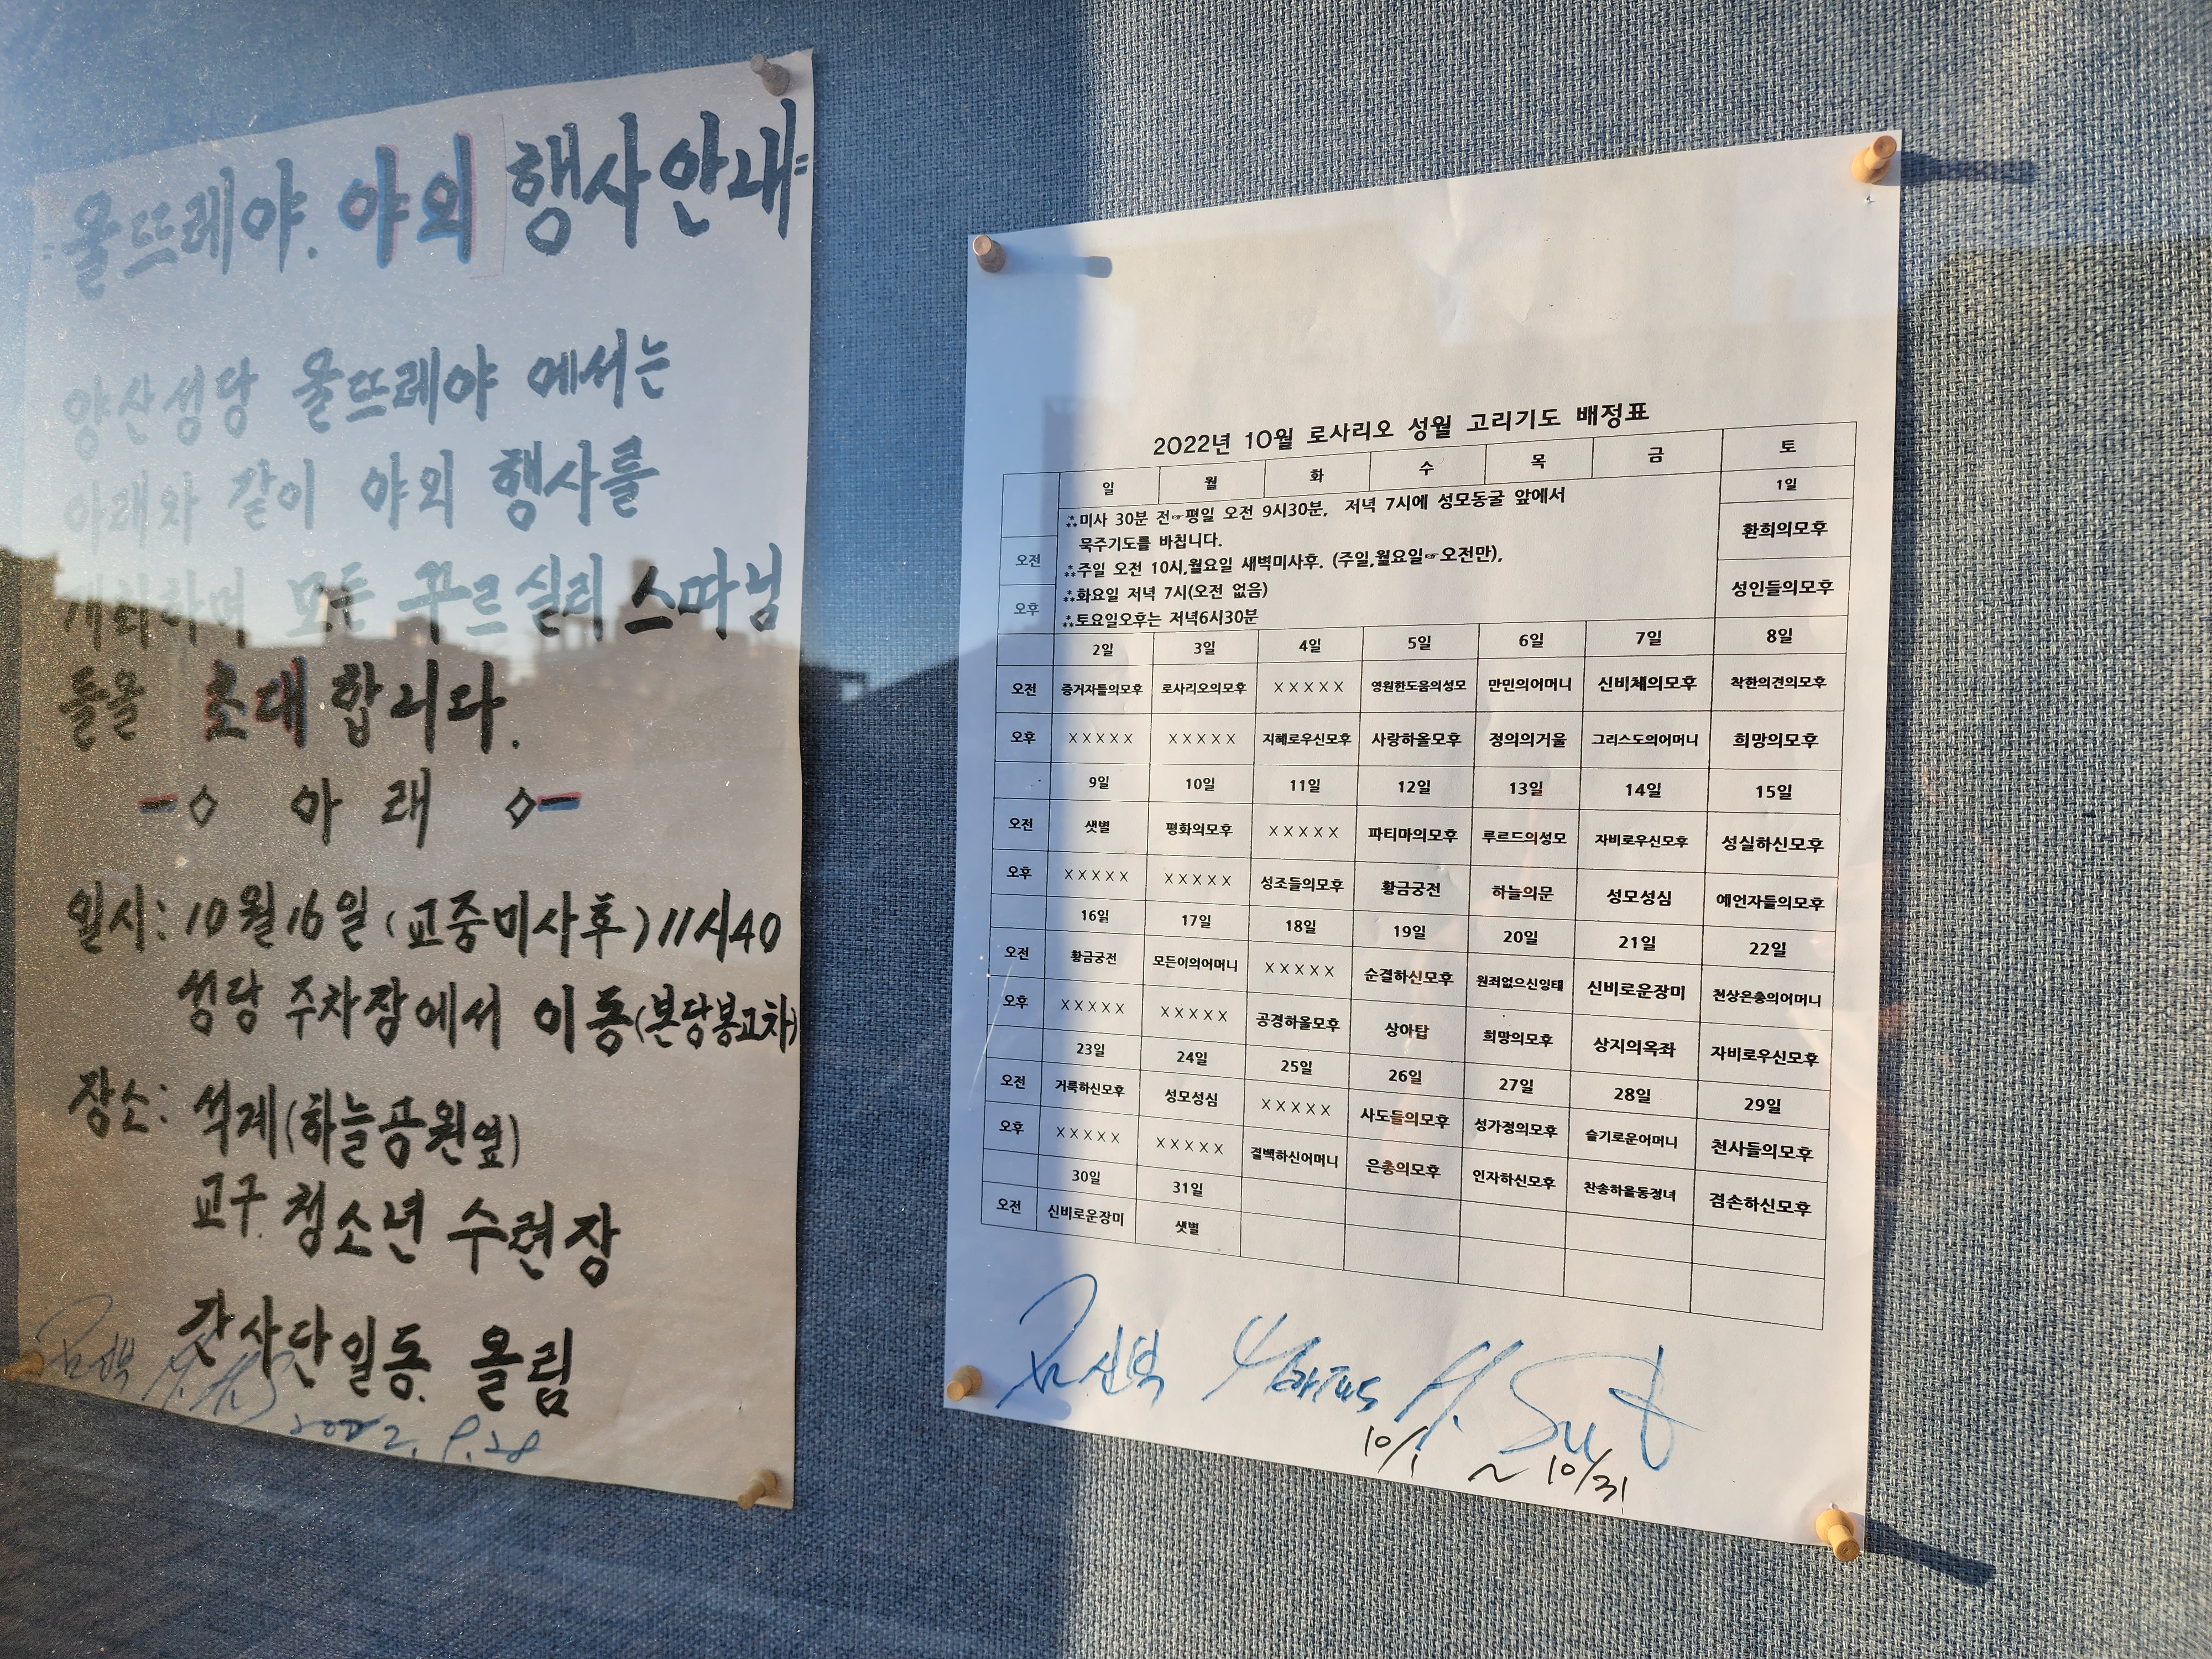 울뜨레야. 야외 행사안내
양산성당 울뜨레야 에서는
아래와 같이 야외 행사를
개최하며 모든 꾸르실리스따님
들을 초대합니다.
아 래
일시: 10월 16일 (교중미사후) 11시40
성당 주차장에서 이동(본당봉고차)
장소: 석계(하늘공원옆)
교구. 청소년 수련장
간사단일동. 올림
2022. 9. 28
2022년 10월 로사리오 성월 고리기도 배정표
일 월 화 수 목 금 토
1일
∴미사 30분 전☞평일 오전 9시30분, 저녁 7시에 성모동굴 앞에서
묵주기도를 바칩니다.
∴주일 오전 10시,월요일 새벽미사후. (주일,월요일☞오전만),
∴화요일 저녁 7시(오전 없음)
∴토요일오후는 저녁6시30분
오전 환희의모후
오후 성인들의모후
2일 3일 4일 5일 6일 7일 8일
오전 증거자들의모후 로사리오의모후 XXXXX 영원한도움의성모 만민의어머니 신비체의모후 착한의견의모후
오후 XXXXX XXXXX 지혜로우신모후 사랑하올모후 정의의거울 그리스도의어머니 희망의모후
9일 10일 11일 12일 13일 14일 15일
오전 샛별 평화의모후 XXXXX 파티마의모후 루르드의성모 자비로우신모후 성실하신모후
오후 XXXXX XXXXX 성조들의모후 황금궁전 하늘의문 성모성심 예언자들의모후
16일 17일 18일 19일 20일 21일 22일
오전 황금궁전 모든이의어머니 XXXXX 순결하신모후 원죄없으신잉태 신비로운장미 천상은총의어머니
오후 XXXXX XXXXX 공경하올모후 상아탑 희망의모후 상지의옥좌 자비로우신모후
23일 24일 25일 26일 27일 28일 29일
오전 거룩하신모후 성모성심 XXXXX 사도들의모후 성가정의모후 슬기로운어머니 천사들의모후
오후 XXXXX XXXXX 결백하신어머니 은총의모후 인자하신모후 찬송하올동정녀 겸손하신모후
30일 31일
오전 신비로운장미 샛별
10/1 ~ 10/31